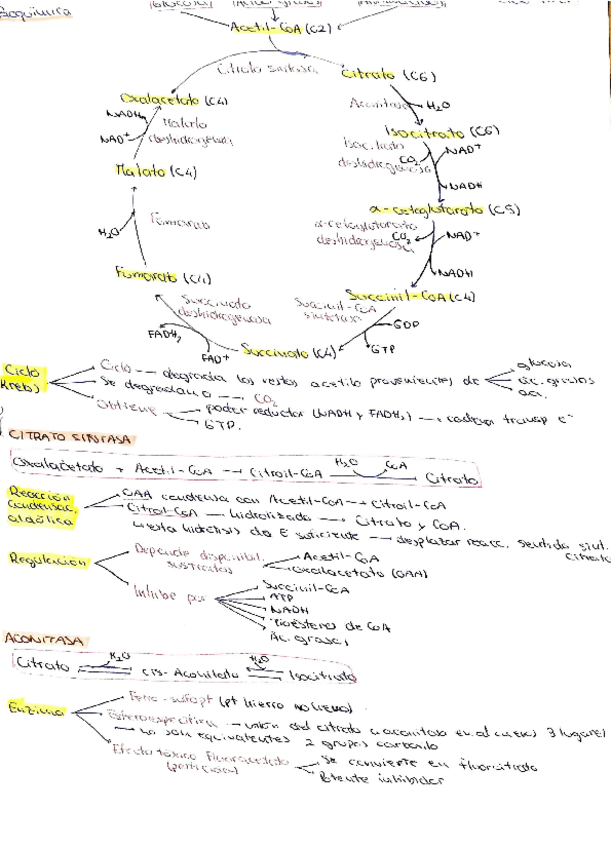 Bioquímica
Acetil-CoA (C2)
Citrato sintasa
Citrato (C6)
Aconitasa
H2O
Isocitrato (C6)
Isocitrato
deshidrogenasa
NAD+
CO2
NADH
α-cetoglutarato (C5)
α-cetoglutarato
deshidrogenasa
CO2
NAD+
NADH
Succinil-CoA (C4)
Succinil-CoA
sintetasa
GDP
GTP
Succinato (C4)
Succinato
deshidrogenasa
FAD+
FADH2
Fumarato (C4)
Fumarasa
H2O
Malato (C4)
Malato
deshidrogenasa
NAD+
NADH
Oxalacetato (C4)
Ciclo
Krebs
Ciclo → degrada los restos acetilo provenientes de
glucosa
ac. grasos
aa.
Se degradan a → CO2
Obtiene
poder reductor (NADH y FADH2) → cadena transp e-
GTP.
CITRATO SINTASA
Oxalacetato + Acetil-CoA → Citroil-CoA H2O CoA Citrato
Reacción
condensac.
aldólica
OAA condensa con Acetil-CoA → Citroil-CoA
Citroil-CoA → hidrolizado → Citrato y CoA.
esta hidrólisis da E suficiente → desplazar reacc. sentido sint.
citrato
Regulación
Depende disponibil.
sustratos
Acetil-CoA
Oxalacetato (OAA)
Inhibe por
Succinil-CoA
ATP
NADH
Tioésteres de CoA
Ac. grasos
ACONITASA
Citrato H2O cis-Aconitato H2O Isocitrato
Enzima
Ferro-sulfopt (pt hierro no hemo).
Estereoespecífica → unión del citrato a aconitasa en al menos 3 lugares
no son equivalentes 2 grupos carboxilo
Efecto tóxico Fluoracetato
Se convierte en fluorcitrato
Potente inhibidor